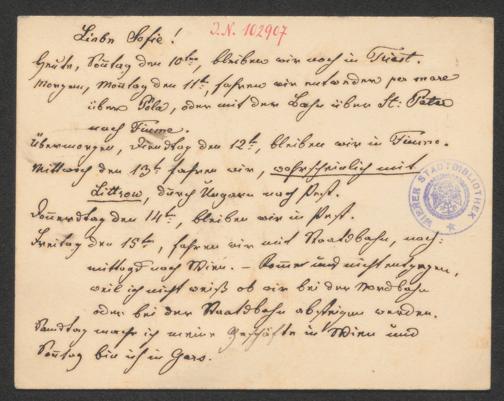 Liebe Sofie!
J.N. 102907
Heute, Sonntag den 10ten, bleiben wir noch in Triest.
Morgen, Montag den 11t:, fahren wir entweder per mare
über Pola, oder mit der Bahn über St: Peter
nach Fiume.
Übermorgen, Dienstag den 12t:, bleiben wir in Fiume.
Mittwoch den 13t: fahren wir, wahrscheinlich mit
Littrow, durch Ungarn nach Pest.
Donnerstag den 14t:, bleiben wir in Pest.
Freitag den 15t:, fahren wir mit Staatsbahn, nach-
mittags nach Wien. – Kommt uns nicht entgegen,
weil ich nicht weiß ob wir bei der Nordbahn
oder bei der Staatsbahn absteigen werden.
Samstag mache ich meine Geschäfte in Wien und
Sonntag bin ich in Gars.
WIENER STADTBIBLIOTHEK